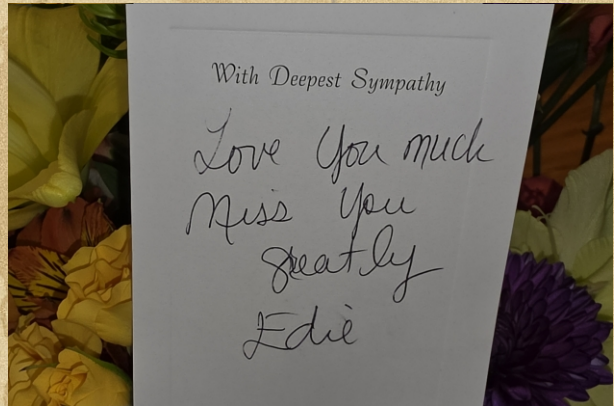 With Deepest Sympathy
Love You much
Miss You
greatly
Edie